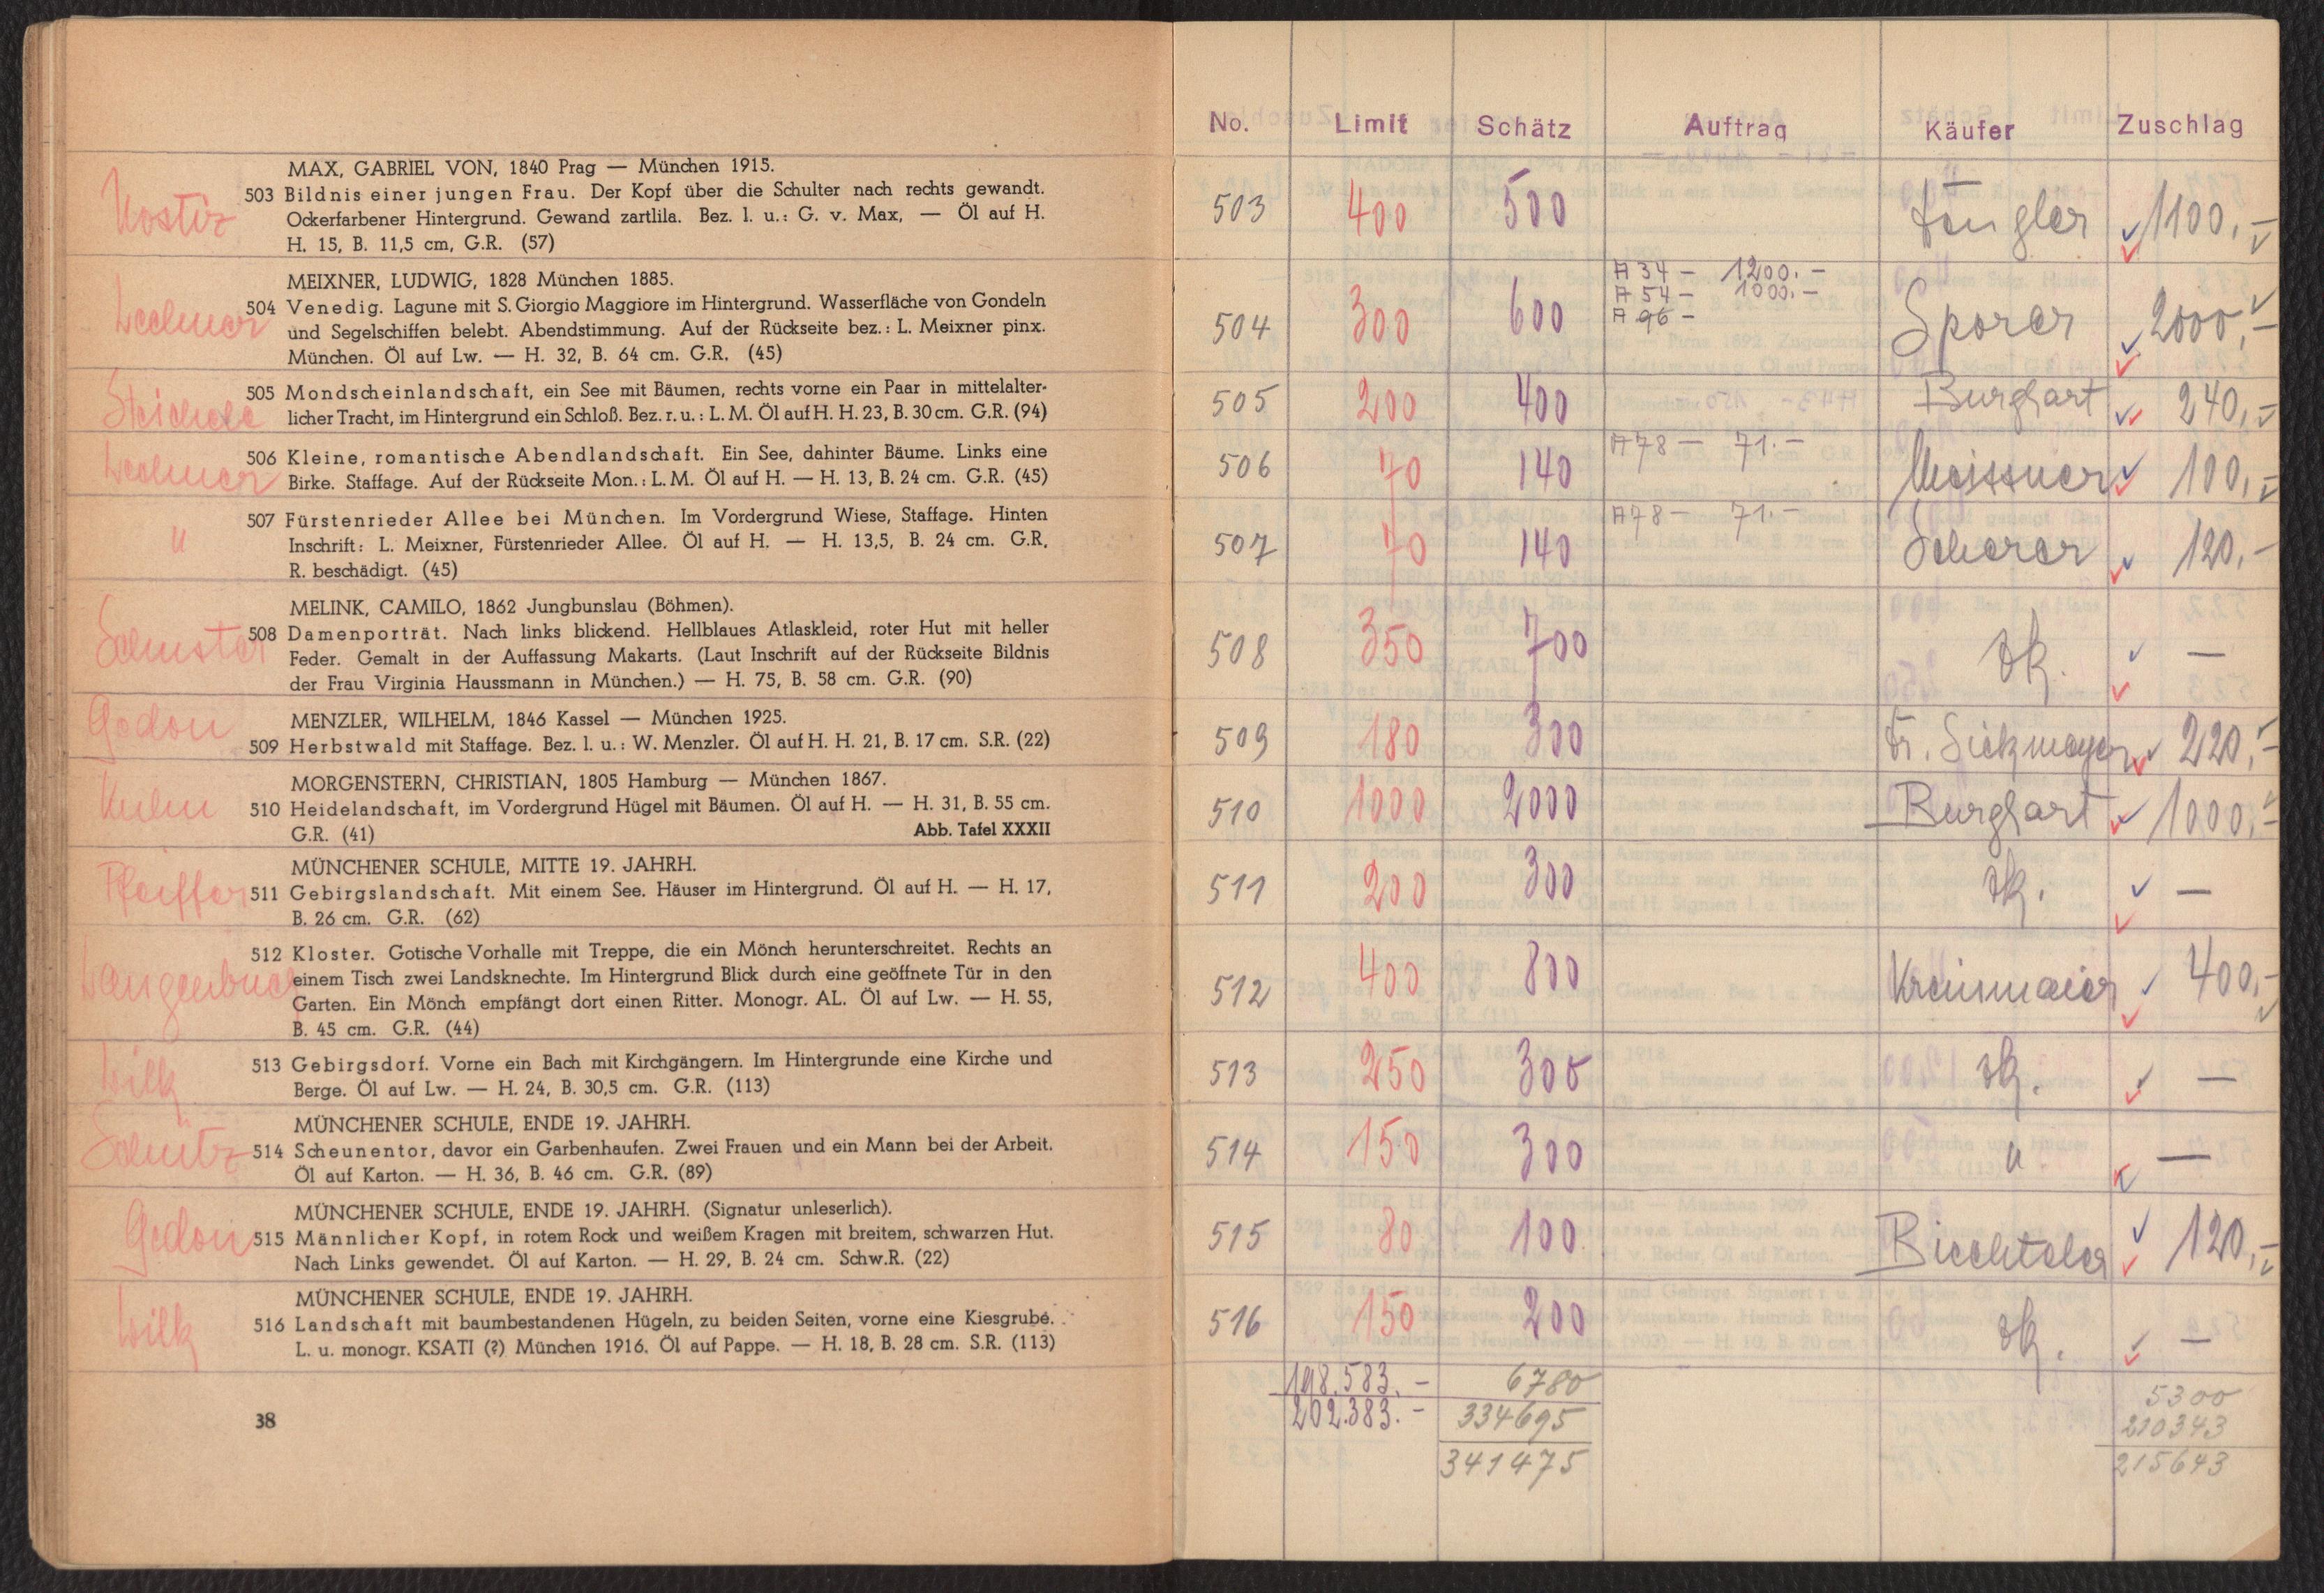 MAX, GABRIEL VON, 1840 Prag — München 1915.
Nostiz
503 Bildnis einer jungen Frau. Der Kopf über die Schulter nach rechts gewandt.
Ockerfarbener Hintergrund. Gewand zartlila. Bez. l. u.: G. v. Max, — Öl auf H.
H. 15, B. 11,5 cm, G.R. (57)
MEIXNER, LUDWIG, 1828 München 1885.
504 Venedig. Lagune mit S. Giorgio Maggiore im Hintergrund. Wasserfläche von Gondeln
und Segelschiffen belebt. Abendstimmung. Auf der Rückseite bez.: L. Meixner pinx.
München. Öl auf Lw. — H. 32, B. 64 cm. G.R. (45)
505 Mondscheinlandschaft, ein See mit Bäumen, rechts vorne ein Paar in mittelalter-
licher Tracht, im Hintergrund ein Schloß. Bez. r. u.: L. M. Öl auf H. H. 23, B. 30 cm. G.R. (94)
506 Kleine, romantische Abendlandschaft. Ein See, dahinter Bäume. Links eine
Birke. Staffage. Auf der Rückseite Mon.: L. M. Öl auf H. — H. 13, B. 24 cm. G.R. (45)
507 Fürstenrieder Allee bei München. Im Vordergrund Wiese, Staffage. Hinten
"
Inschrift: L. Meixner, Fürstenrieder Allee. Öl auf H. — H. 13,5, B. 24 cm. G.R,
R. beschädigt. (45)
MELINK, CAMILO, 1862 Jungbunslau (Böhmen).
Schuster
508 Damenporträt. Nach links blickend. Hellblaues Atlaskleid, roter Hut mit heller
Feder. Gemalt in der Auffassung Makarts. (Laut Inschrift auf der Rückseite Bildnis
der Frau Virginia Haussmann in München.) — H. 75, B. 58 cm. G.R. (90)
Gedon
MENZLER, WILHELM, 1846 Kassel — München 1925.
509 Herbstwald mit Staffage. Bez. l. u.: W. Menzler. Öl auf H. H. 21, B. 17 cm. S.R. (22)
MORGENSTERN, CHRISTIAN, 1805 Hamburg — München 1867.
Kuhn
510 Heidelandschaft, im Vordergrund Hügel mit Bäumen. Öl auf H. — H. 31, B. 55 cm.
G.R. (41) Abb. Tafel XXXII
MÜNCHENER SCHULE, MITTE 19. JAHRH.
Pfeiffer
511 Gebirgslandschaft. Mit einem See. Häuser im Hintergrund. Öl auf H. — H. 17,
B. 26 cm. G.R. (62)
512 Kloster. Gotische Vorhalle mit Treppe, die ein Mönch herunterschreitet. Rechts an
Langenbuch
einem Tisch zwei Landsknechte. Im Hintergrund Blick durch eine geöffnete Tür in den
Garten. Ein Mönch empfängt dort einen Ritter. Monogr. AL. Öl auf Lw. — H. 55,
B. 45 cm. G.R. (44)
Wilk
513 Gebirgsdorf. Vorne ein Bach mit Kirchgängern. Im Hintergrunde eine Kirche und
Berge. Öl auf Lw. — H. 24, B. 30,5 cm. G.R. (113)
MÜNCHENER SCHULE, ENDE 19. JAHRH.
Schütz
514 Scheunentor, davor ein Garbenhaufen. Zwei Frauen und ein Mann bei der Arbeit.
Öl auf Karton. — H. 36, B. 46 cm. G.R. (89)
MÜNCHENER SCHULE, ENDE 19. JAHRH. (Signatur unleserlich).
Gedon
515 Männlicher Kopf, in rotem Rock und weißem Kragen mit breitem, schwarzen Hut.
Nach Links gewendet. Öl auf Karton. — H. 29, B. 24 cm. Schw.R. (22)
MÜNCHENER SCHULE, ENDE 19. JAHRH.
Wilk
516 Landschaft mit baumbestandenen Hügeln, zu beiden Seiten, vorne eine Kiesgrube.
L. u. monogr. KSATI (?) München 1916. Öl auf Pappe. — H. 18, B. 28 cm. S.R. (113)
38
No. Limit Schätz Auftrag Käufer Zuschlag
503 400 500 1100,-
A 34 - 1200.-
A 54 - 1000.-
A 96 -
504 300 600 Sporer 2000,-
505 200 400 Burghart 240,-
A 78 - 71.-
506 70 140 Meissner 100,-
A 78 - 71.-
507 70 140 Scherer 120,-
508 350 700 zk. —
509 180 300 Fr. Sickmayer 220,-
510 1000 2000 Burghart 1000,-
511 200 300 zk. —
512 400 800 Kreismaier 400,-
513 250 300 zk. —
514 150 300 " —
515 80 100 Biechteler 120,-
516 150 200 zk. —
198.583.- 6780 5300
202.383.- 334695 210343
341475 215643